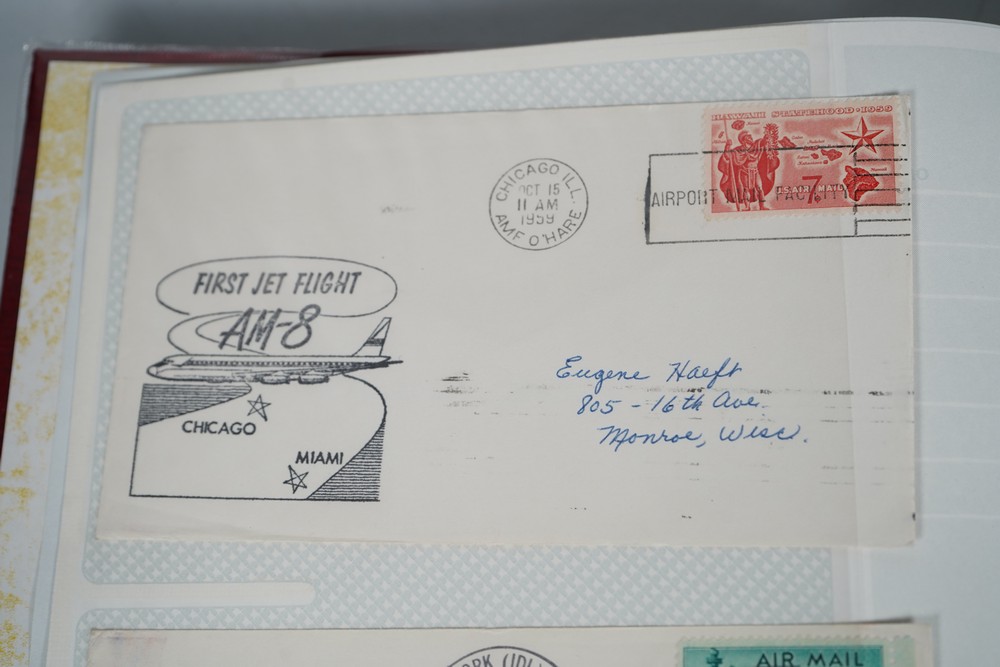 HAWAII STATEHOOD · 1959
U.S. AIR MAIL 7¢
CHICAGO ILL.
OCT 15
11 AM
1959
AMF O'HARE
AIRPORT MAIL FACILITY
FIRST JET FLIGHT
AM-8
CHICAGO
MIAMI
Eugene Haeft
805 - 16th Ave.
Monroe, Wisc.
AIR MAIL